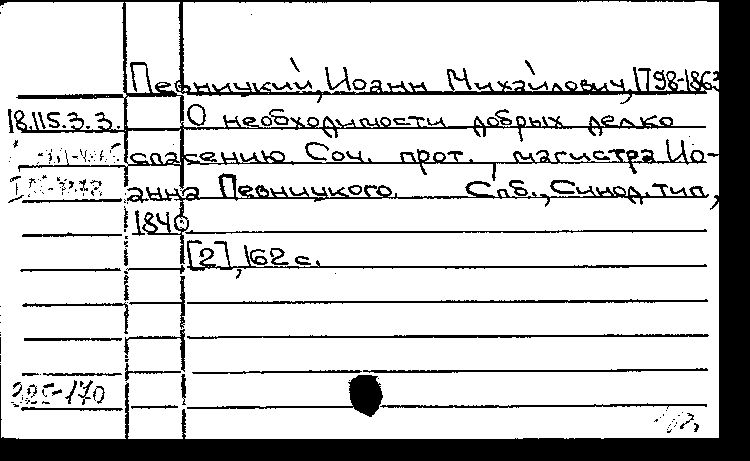 Певницкий, Иоанн Михайлович, 1798-1863
18.115.3.3. О необходимости добрых дел ко
спасению. Соч. прот., магистра Ио-
анна Певницкого. Спб., Синод. тип,
1840
[2], 162 с.
325-170